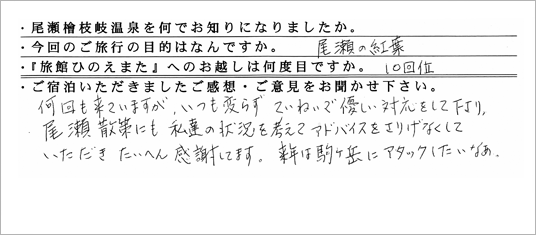 ・尾瀬檜枝岐温泉を何でお知りになりましたか。
・今回のご旅行の目的はなんですか。 尾瀬の紅葉
・『旅館ひのえまた』へのお越しは何度目ですか。 10回位
・ご宿泊いただきましたご感想・ご意見をお聞かせ下さい。
何回も来ていますが、いつも変らず ていねいで優しい対応をして下より、
尾瀬散策にも私達の状況を考えてアドバイスをさりげなくして
いただき たいへん感謝してます。来年は駒ヶ岳にアタックしたいなぁ。